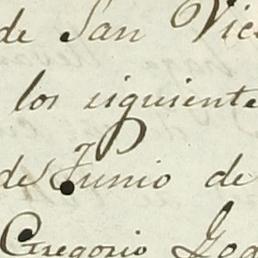 de San Vic
los siguiente
de Junio de
Gregorio